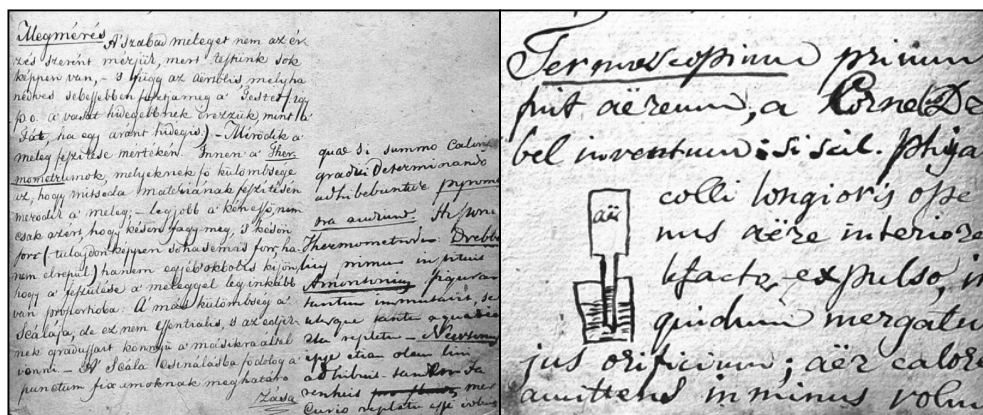 Megmérés A' szabad meleget nem az ér-
zés szerént mérjük, mert testünk sok
képpen van, – 's függ az
nedves sebessebben meg a' Testet / igy
p.o. a' vasat hidegebbnek érezzük, mint a'
fát, ha egy aránt hidegis.) – Míródik a'
meleg fejtítése mértékén. Innen a' Ther-
mometrumok, melyeknek fő külömbsége
ez, hogy mitsoda matériának fejtítésén
meződik a' meleg; – legjobb a' kéneső, nem
csak azért, hogy későn fagy meg, 's későn
forr (tulajdonképpen sohasemás forr, ha-
nem elrepül) hanem egyéb okbólis kijön,
hogy a' fejtítése a' meleggel leginkább
van proportioba. A' másik külömbség a'
Scálája, de ez nem essentialis, 's az edjik-
nek grádussait könnyü a' másikra által
vonni. – A' Scála tsinálásba fődolog a'
punctum fixumoknak meghatáro
zása
quae si summo Calori
gradui Determinando
adhibebuntur pyrome
tra audiunt.
Thermometrum Drebbe
lius primus instituit
Amontonius figuram
tantum immutavit,
uterque tantu aqua
repleta – Newtonus
etiam oleum lini
adhibuit tandem Fa
renheit mer
Curio repletu esse
Termoscopium primum
fuit aëreum, a Corne Dre
bel inventum: si scil. phia
colli longioris ope
nus aëre interiore
kfacto, expulso, in
quidum mergatu
aër
jus orificium; aër calore
amittens in minus volu